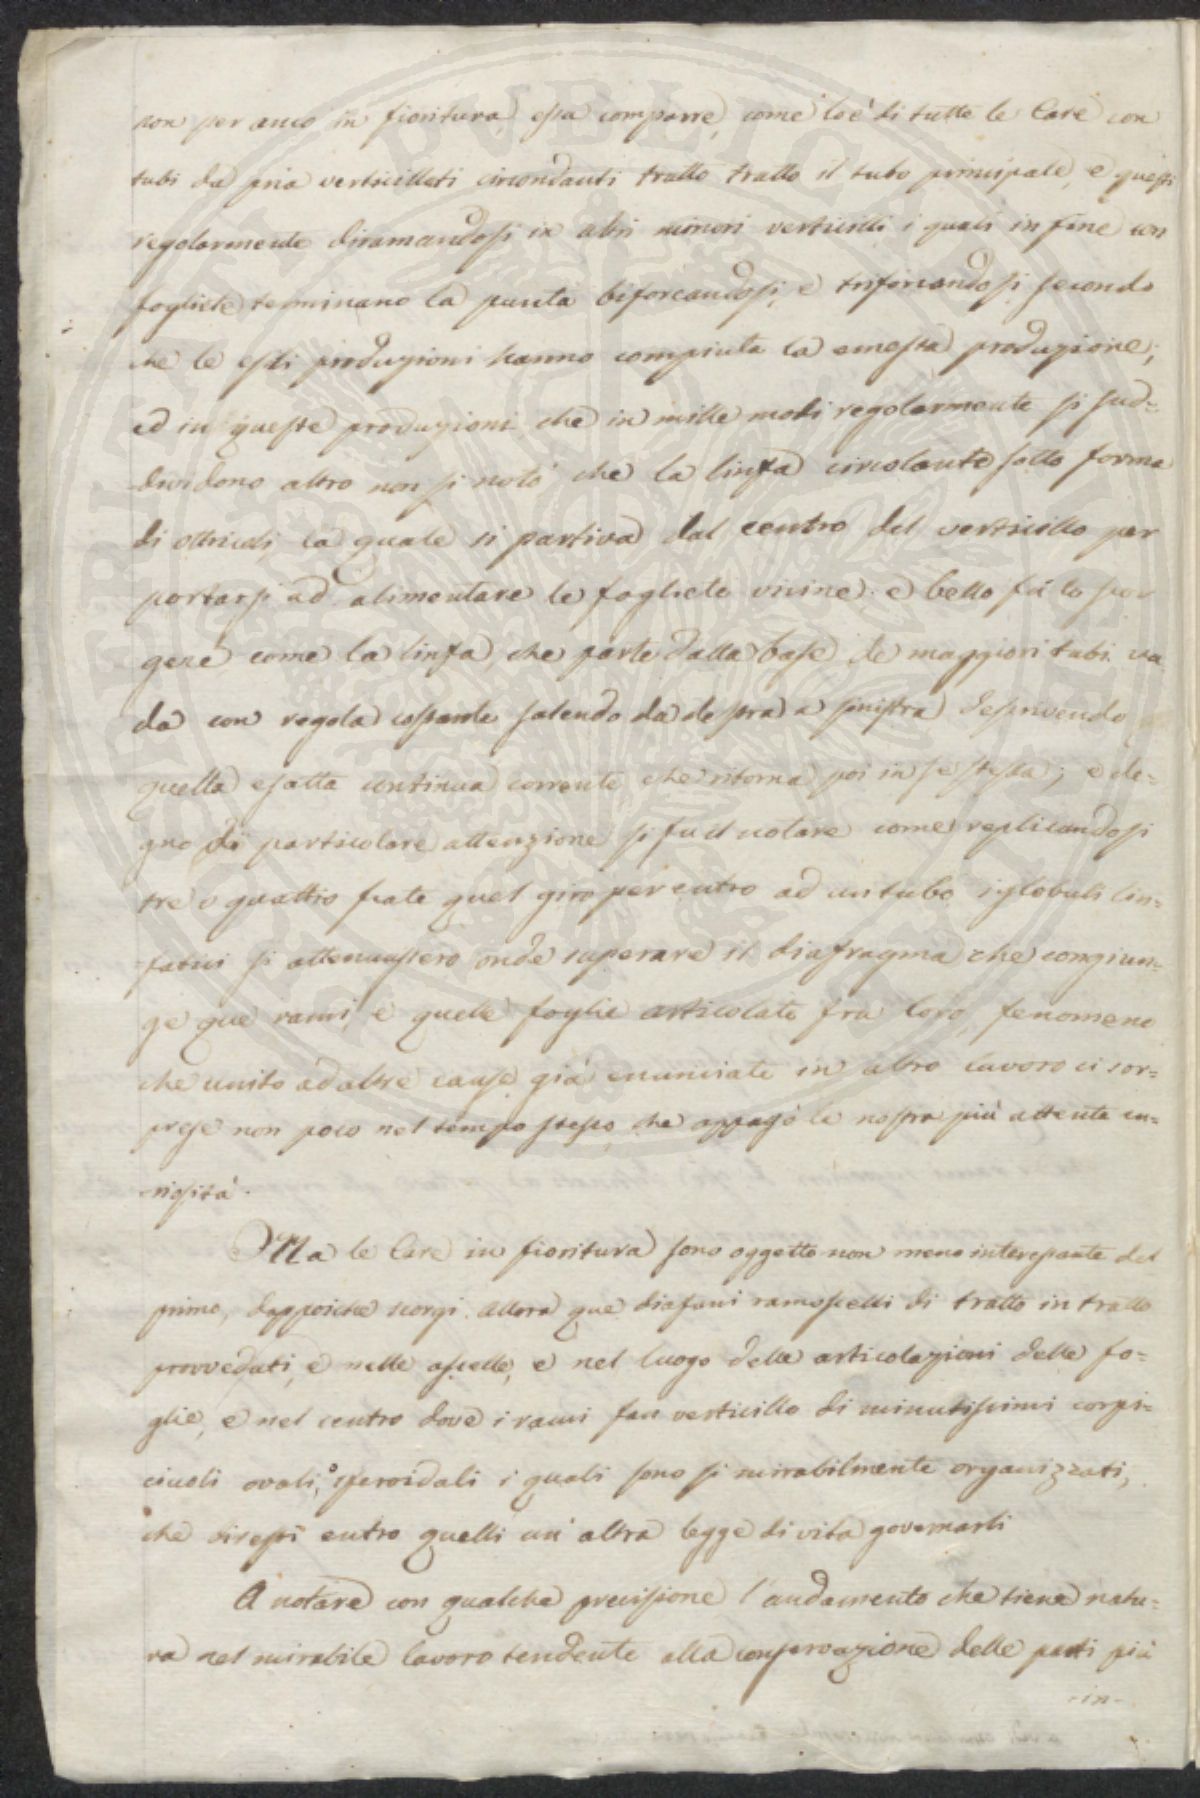 non per anco in fioritura, essa comparre, come lo è di tutte le Care con
tubi da pria verticillati circondanti tratto tratto il tubo principale, e questi
regolarmente diramandosi in altri minori verticilli i quali in fine con
fogliete terminano la punta biforcandosi, e triforcandosi secondo
che le esili produzioni hanno compiuta la onesta produzione;
ed in queste produzioni che in mille modi regolarmente si sud=
dividono altro non si notò che la linfa circolante sotto forma
di ottricoli, la quale si partiva dal centro del verticillo per
portarsi ad alimentare le fogliete vicine; e bello fu lo scor
gere come la linfa, che parte dalla base de maggiori tubi va
da con regola costante salendo da destra a sinistra descrivendo
quella esatta continua corrente che ritorna poi in se stessa; e de=
gno di particolare attenzione si fu il notare come replicandosi
tre o quattro fiate quel giro per entro ad un tubo i globuli lin=
fatici si attenuassero onde superare il diafragma che congiun=
ge que rami, e quelle foglie articolate fra loro, fenomeno
che unito ad altre cause già enunciate in altro lavoro ci sor=
prese non poco nel tempo stesso, che appagò le nostra più attente cu=
riosità.
Ma le Care in fioritura sono oggetto non meno interessante del
primo, dappoiché scorgi allora que diafani ramoscelli di tratto in tratto
provveduti, e nelle ascelle, e nel luogo delle articolazioni delle fo=
glie, e nel centro dove i rami fan verticillo di minutissimi corpi=
ciuoli ovali, o sferoidali i quali sono sì mirabilmente organizzati,
che diresti entro quelli un'altra legge di vita governarli
A notare con qualche precisione l'andamento che tiene natu=
ra nel mirabile lavoro tendente alla conservazione delle parti più
-in-